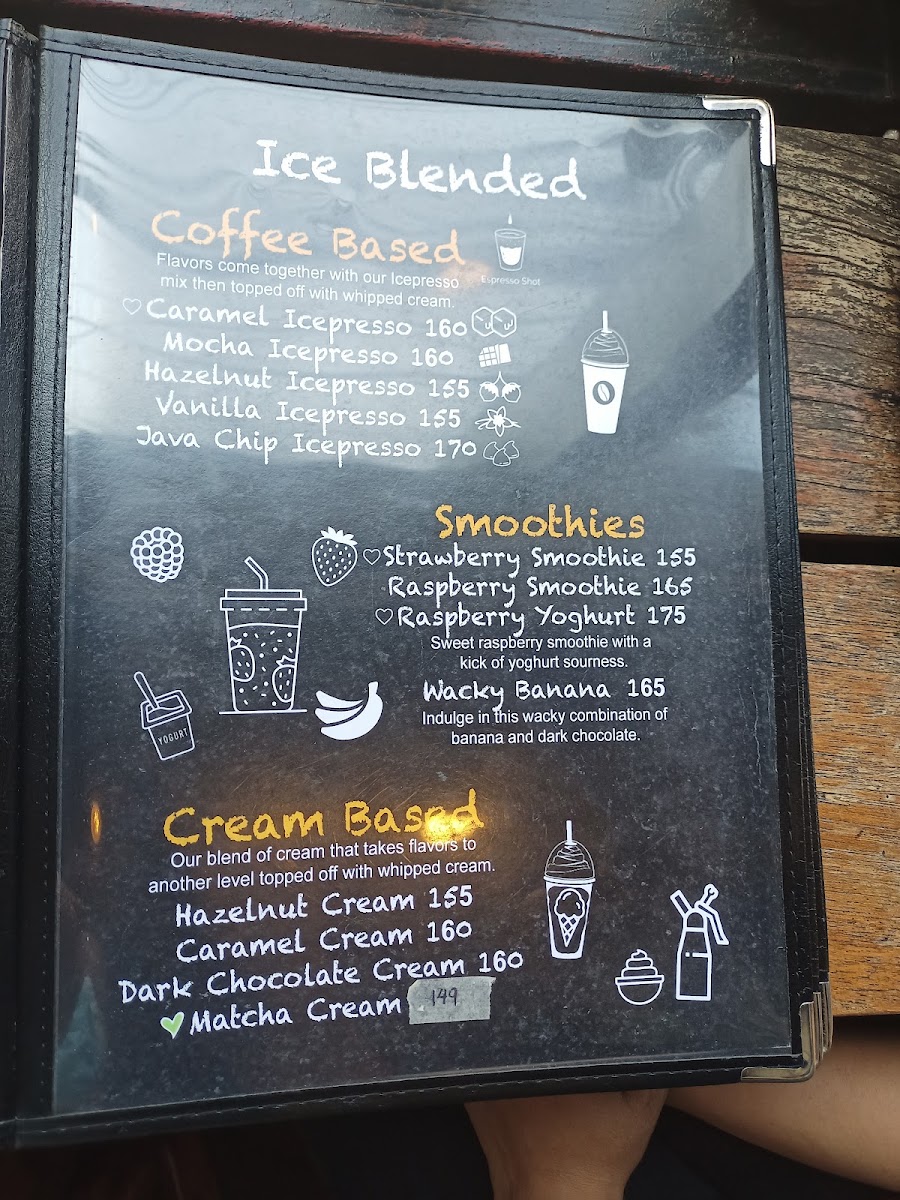 Ice Blended
Coffee Based
Espresso Shot
Flavors come together with our Icepresso
mix then topped off with whipped cream.
Caramel Icepresso 160
Mocha Icepresso 160
Hazelnut Icepresso 155
Vanilla Icepresso 155
Java Chip Icepresso 170
Smoothies
Strawberry Smoothie 155
Raspberry Smoothie 165
Raspberry Yoghurt 175
Sweet raspberry smoothie with a
kick of yoghurt sourness.
Wacky Banana 165
Indulge in this wacky combination of
banana and dark chocolate.
YOGURT
Cream Based
Our blend of cream that takes flavors to
another level topped off with whipped cream.
Hazelnut Cream 155
Caramel Cream 160
Dark Chocolate Cream 160
Matcha Cream 149